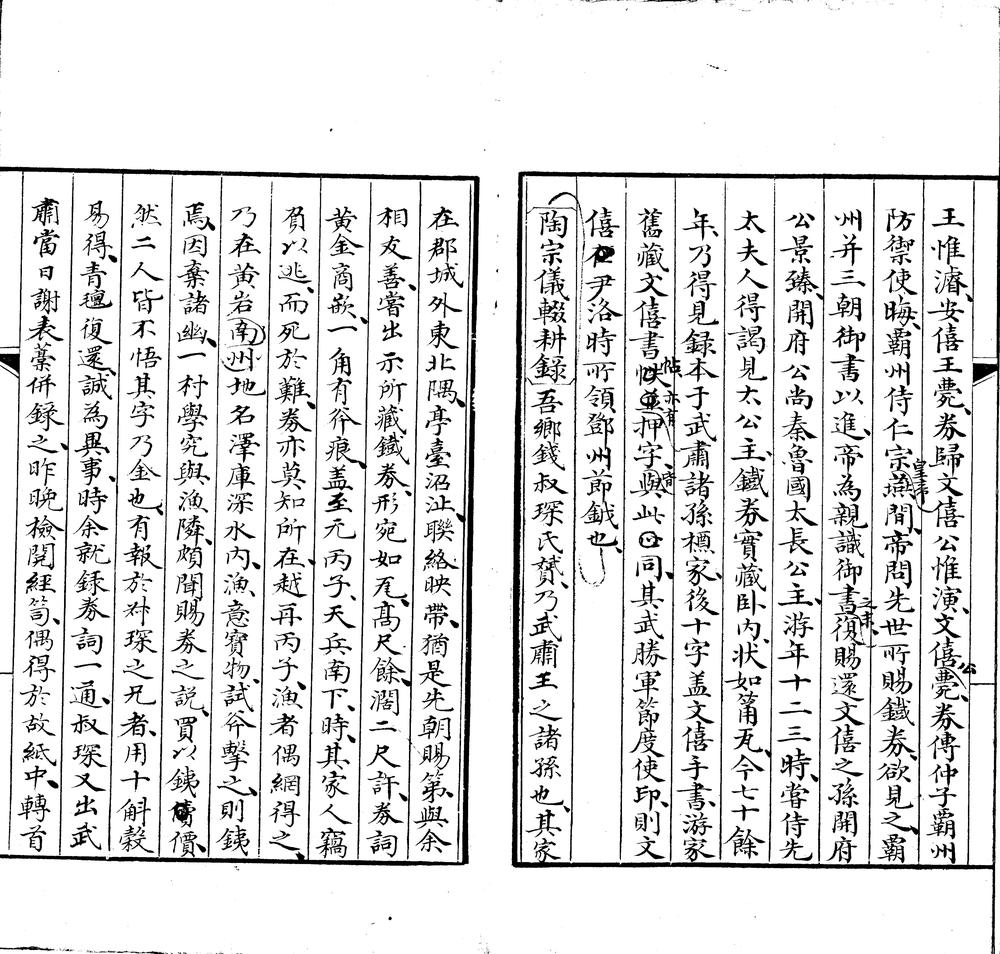 王惟濬安僖王薨券歸文僖公惟演文僖公薨券傳仲子霸州
防禦使晦霸州侍仁宗皇帝燕間帝問先世所賜鐵券欲見之霸
州并三朝御書以進帝為親識御書之末復賜還文僖之孫開府
公景臻開府公尚秦魯國太長公主游年十二三時嘗侍先
太夫人得謁見太公主鐵券實藏臥內狀如筩瓦今七十餘
年乃得見錄本于武肅諸孫槱家後十字蓋文僖手書游家
舊藏文僖書帖亦有押字皆與此同其武勝軍節度使印則文
僖尹洛時所領鄧州節鉞也
陶宗儀輟耕錄吾鄉錢叔琛氏贇乃武肅王之諸孫也其家
在郡城外東北隅亭臺沼沚聯絡映帶猶是先朝賜第與余
相友善嘗出示所藏鐵券形宛如瓦高尺餘濶二尺許券詞
黃金商嵌一角有斧痕蓋至元丙子天兵南下時其家人竊
負以逃而死於難券亦莫知所在越再丙子漁者偶網得之
乃在黃岩南州地名澤庫深水內漁意寶物試斧擊之則鐵
焉因棄諸幽一村學究與漁隣頗聞賜券之説買以鐵價
然二人皆不悟其字乃金也有報於叔琛之兄者用十斛穀
易得青氊復還誠為異事時余就錄券詞一通叔琛又出武
肅當日謝表藁併錄之昨晚檢閱經笥偶得於故紙中轉首